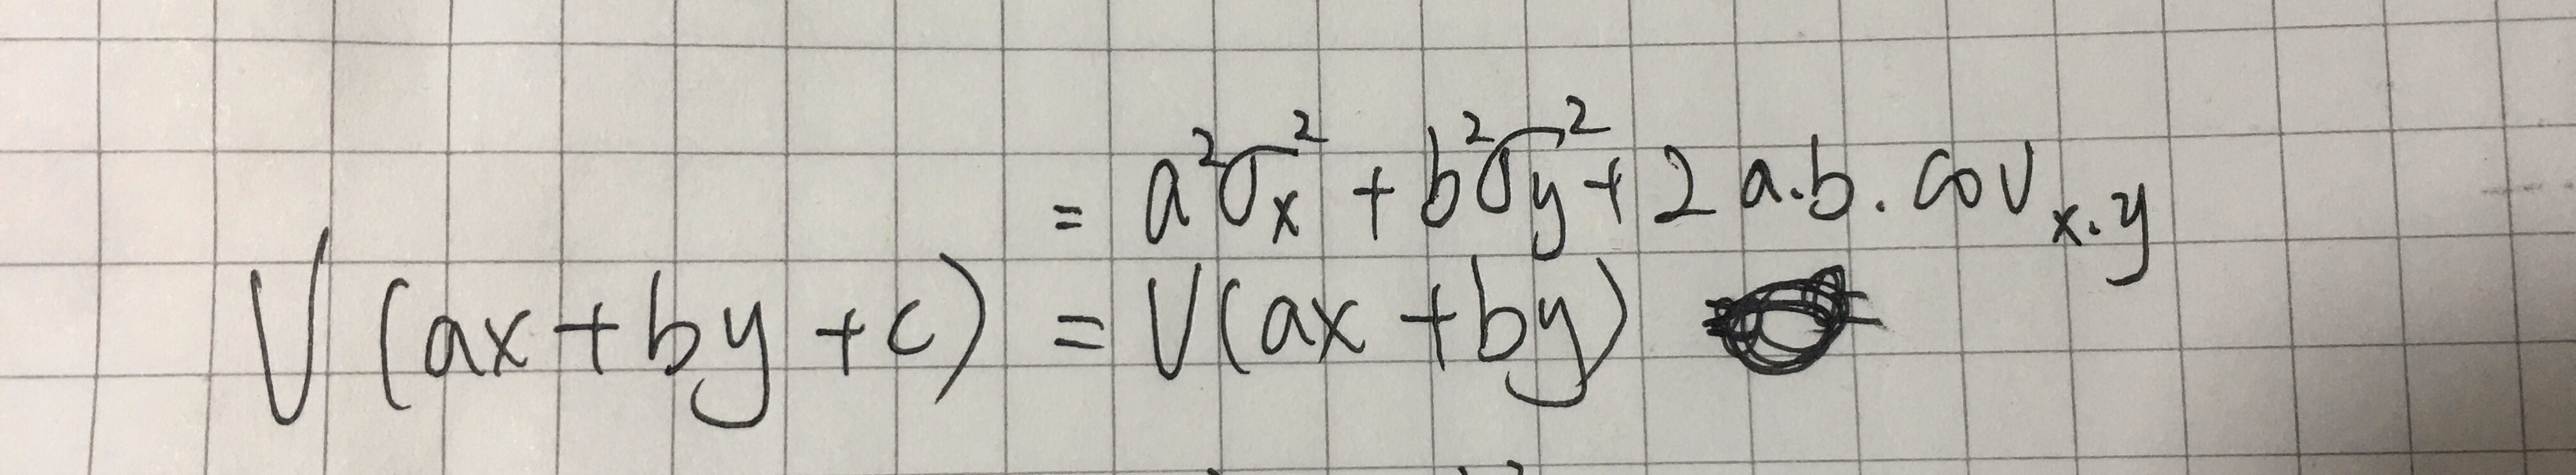 = a²σₓ² + b²σy² + 2 a.b. cov x.y
V (ax + by + c) = V (ax + by)